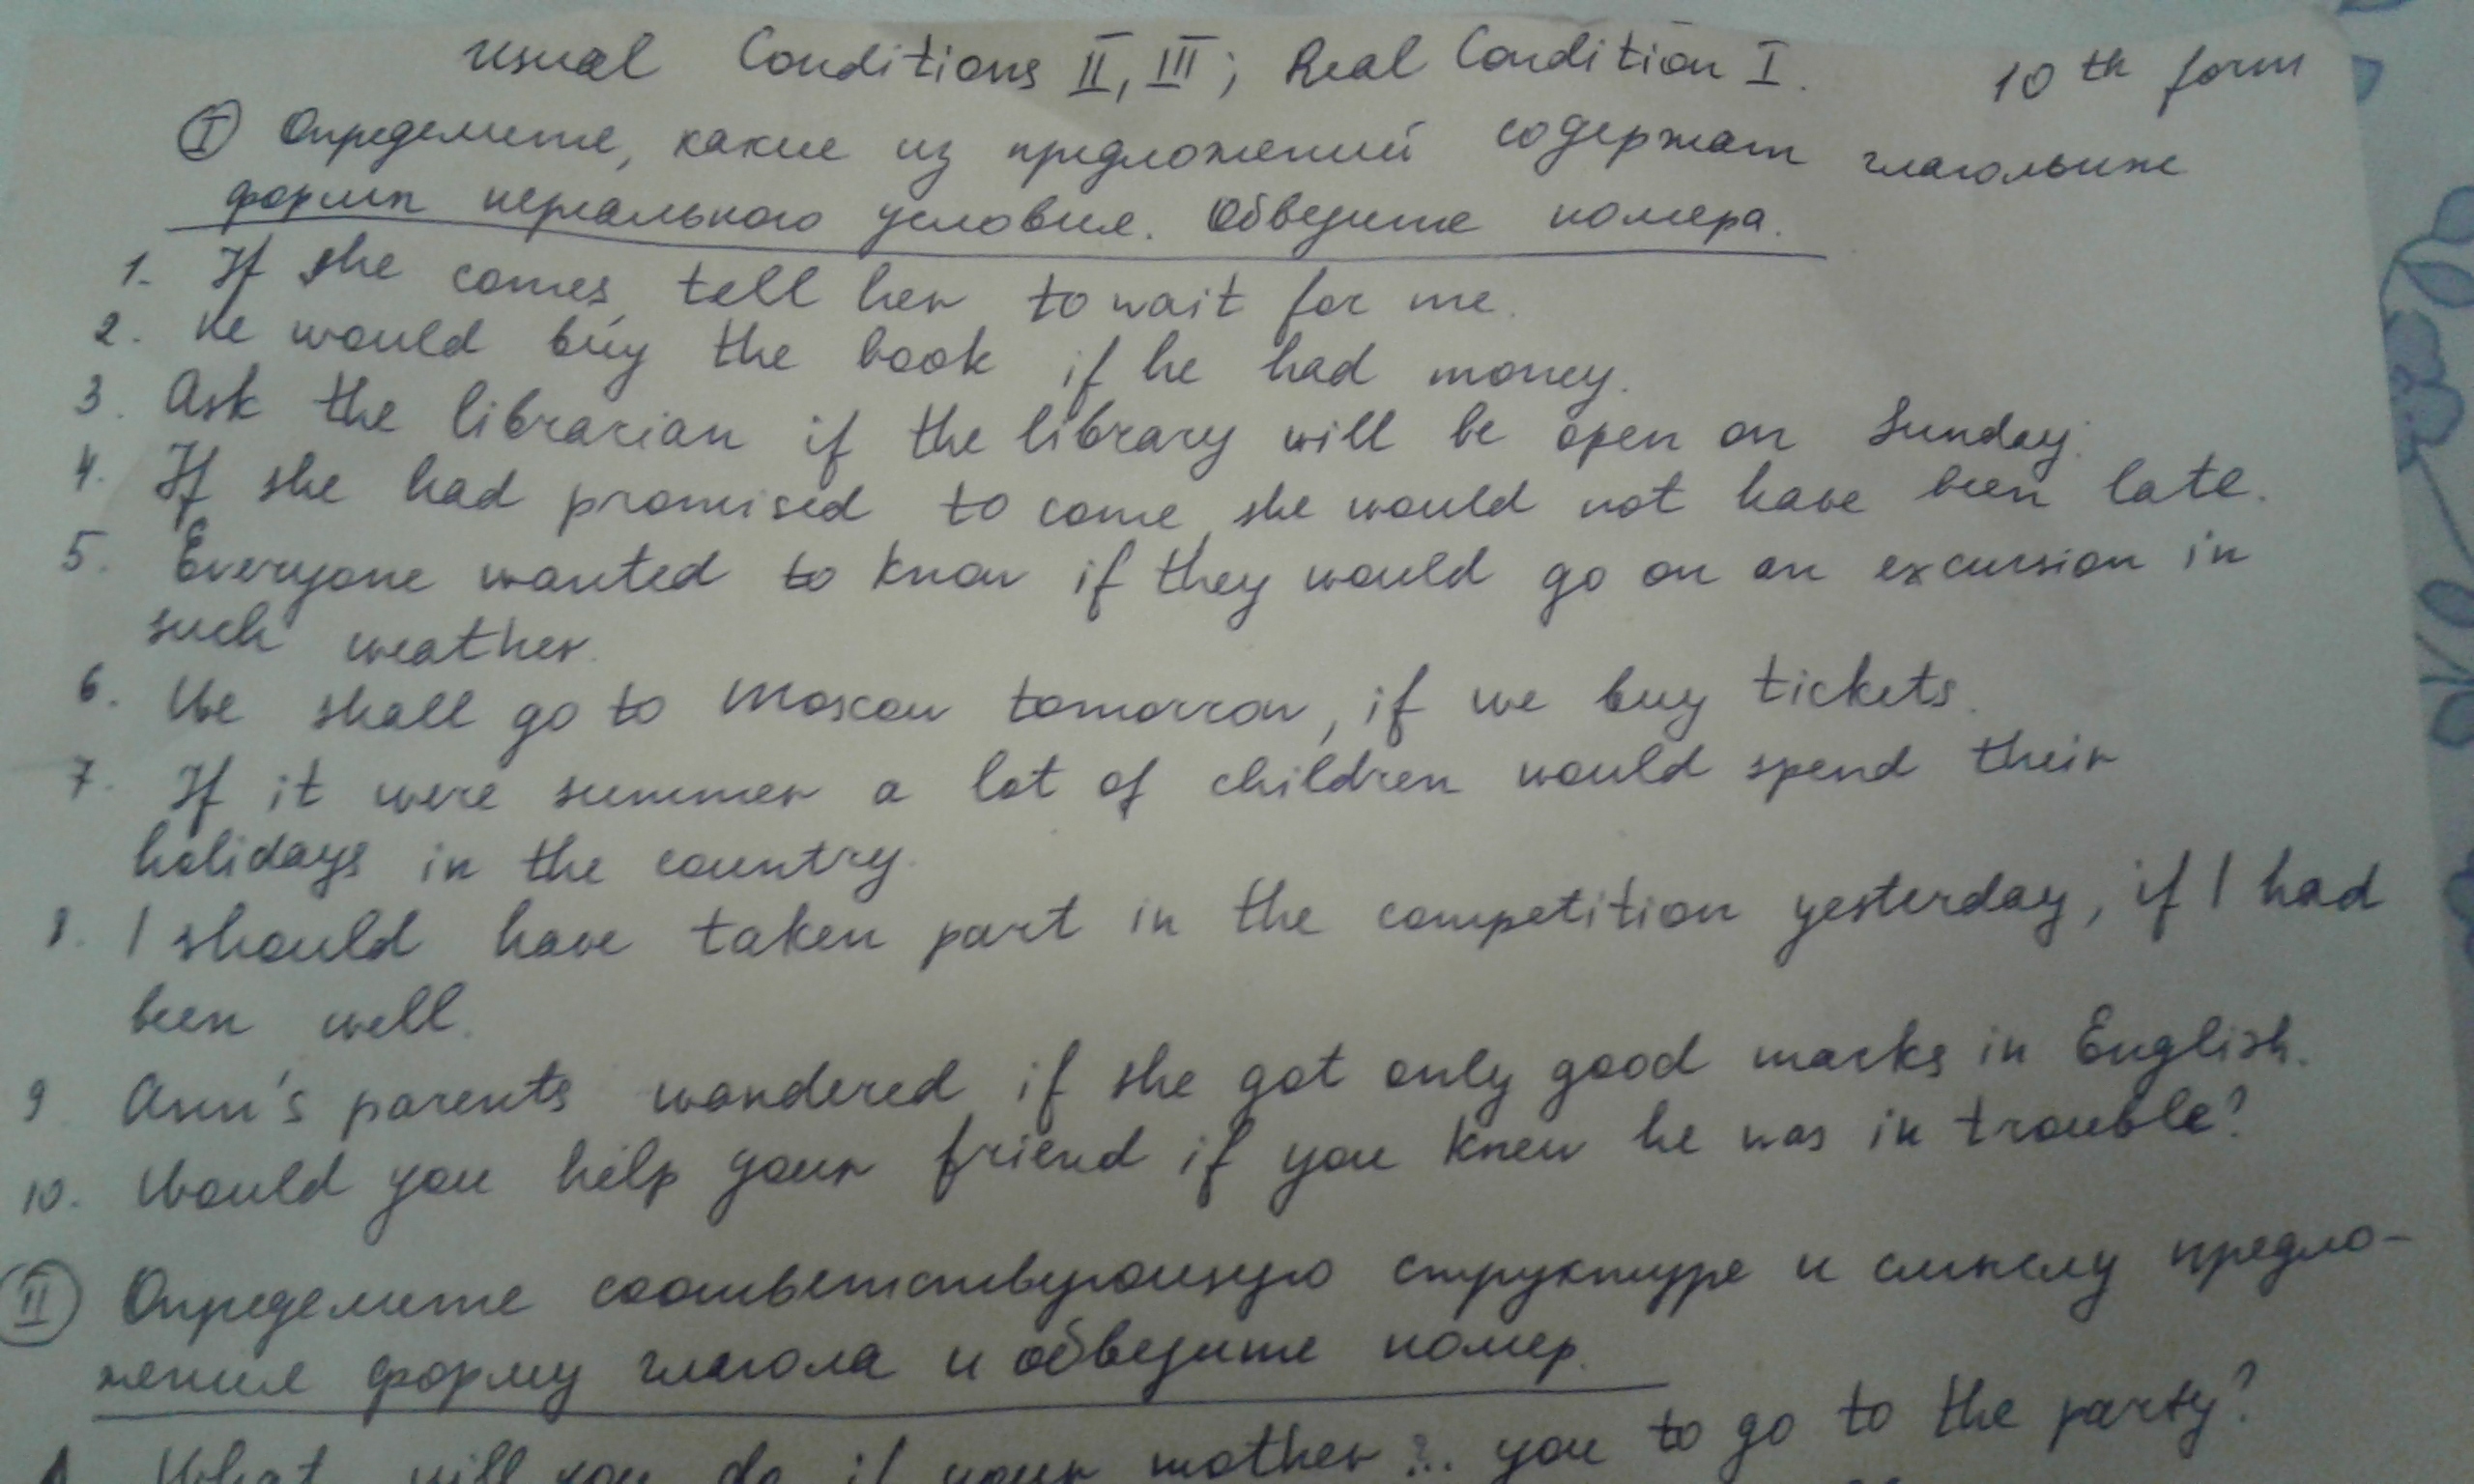 usual Conditions II, III; Real Condition I. 10th form
I Определите, какие из предложений содержат глагольные
формы нереального условия. Обведите номера.
1. If she comes, tell her to wait for me.
2. He would buy the book if he had money.
3. Ask the librarian if the library will be open on Sunday.
4. If she had promised to come, she would not have been late.
5. Everyone wanted to know if they would go on an excursion in
such weather.
6. We shall go to Moscow tomorrow, if we buy tickets.
7. If it were summer a lot of children would spend their
holidays in the country.
8. I should have taken part in the competition yesterday, if I had
been well.
9 Ann's parents wondered if she got only good marks in English.
10. Would you help your friend if you knew he was in trouble?
II Определите соответствующую структуре и смыслу предло-
жения форму глагола и обведите номер.
What will you do if your mother ... you to go to the party?